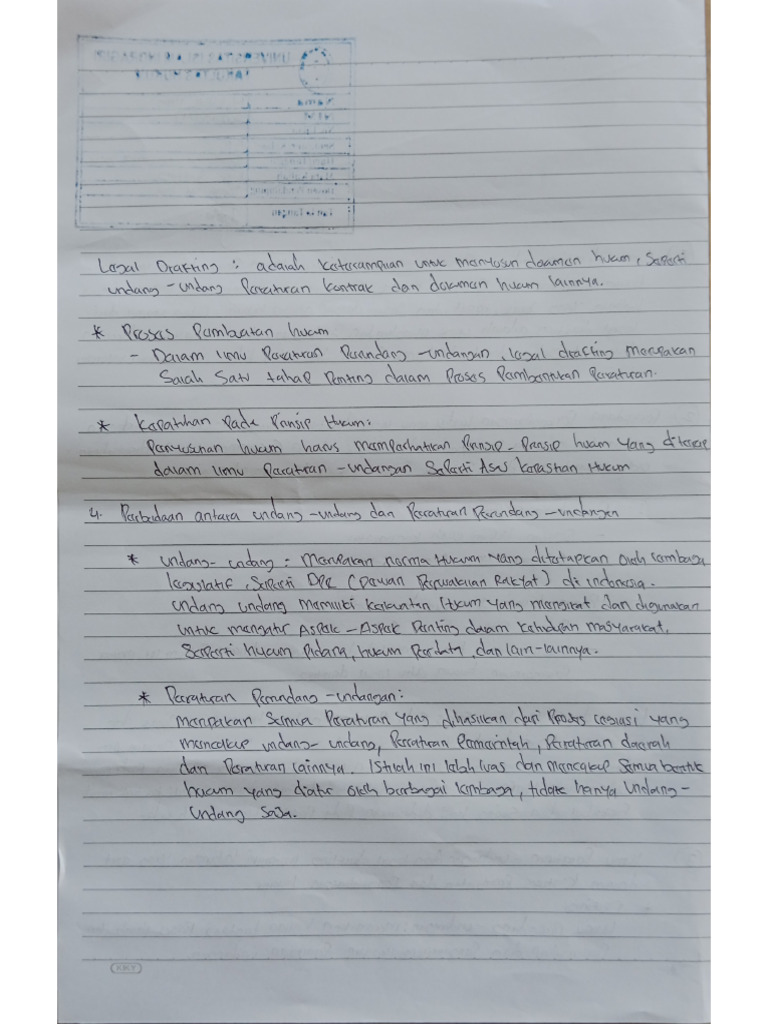 Legal Drafting : adalah keterampilan untuk menyusun dokumen hukum, seperti
undang-undang Peraturan kontrak dan dokumen hukum lainnya.
* Proses Pembuatan hukum
- Dalam ilmu Peraturan Perundang-undangan, legal drafting merupakan
Salah Satu tahap Penting dalam Proses Pembentukan Peraturan.
* Kepatuhan Pada Prinsip Hukum:
Penyusunan hukum harus memperhatikan Prinsip-Prinsip hukum yang diterap
dalam ilmu Peraturan-undangan Seperti Asas Kepastian Hukum
4. Perbedaan antara undang-undang dan Peraturan Perundang-undangan
* undang-undang : Merupakan norma Hukum yang ditetapkan oleh lembaga
legislatif, Seperti DPR (Dewan Perwakilan Rakyat) di indonesia.
undang undang memiliki kekuatan Hukum yang mengikat dan digunakan
untuk mengatur Aspek-Aspek Penting dalam kehidupan masyarakat,
Seperti hukum Pidana, hukum Perdata, dan lain-lainnya.
* Peraturan Perundang-undangan:
merupakan Semua Peraturan yang dihasilkan dari Proses legislasi yang
mencakup undang-undang, Peraturan Pemerintah, Peraturan daerah
dan Peraturan lainnya. Istilah ini lebih luas dan mencakup Semua bentuk
hukum yang diatur oleh berbagai lembaga, tidak hanya Undang-
Undang Saja.
KKY